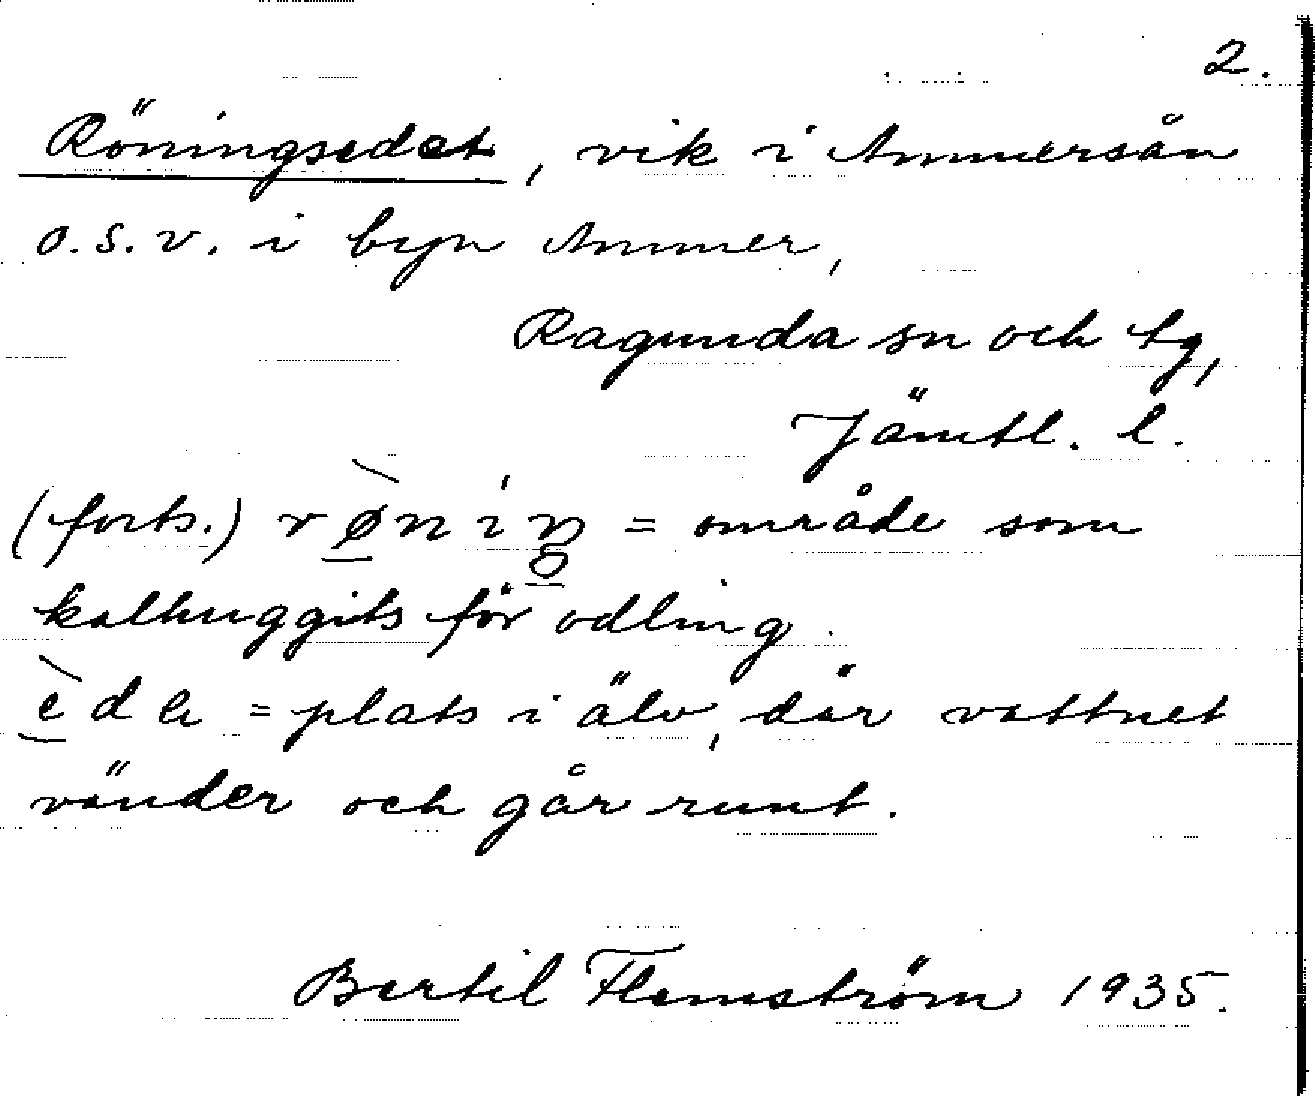 2.
Röningsedet, vik i Ammersån
o.s.v. i byn Ammer,
Ragunda sn och tg,
Jämtl. l.
(forts.) rø̀niŋ = område som
kalhuggits för odling.
èda = plats i älv, där vattnet
vänder och går runt.
Bertil Flemström 1935.